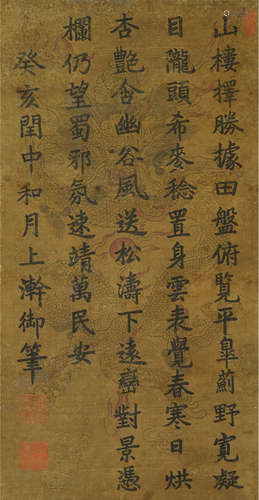 山樓擇勝據田盤俯覽平皐薊野寬凝
目隴頭希麥稔置身雲表覺春寒日烘
杏艷含幽谷風送松濤下遠巒對景憑
欄仍望蜀邪氛速靖萬民安
癸亥閏中和月上澣御筆